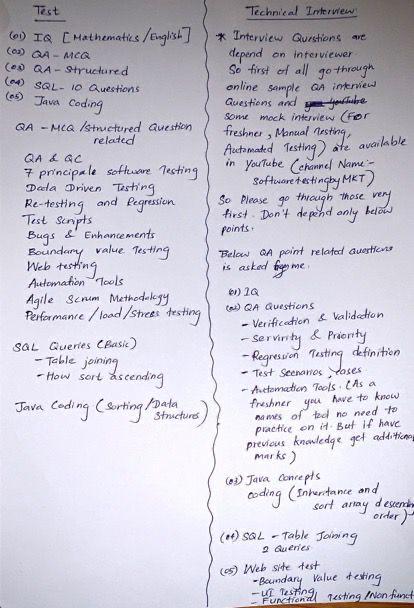 Test
(01) IQ [Mathematics/English]
(02) QA - MCQ
(03) QA - Structured
(04) SQL - 10 Questions
(05) Java Coding
QA - MCQ /Structured Question
related
QA & QC
7 principale software Testing
Dada Driven Testing
Re-testing and Regression
Test Scripts
Bugs & Enhancements
Boundary value Testing
Web testing
Automation Tools
Agile Scrum Methodology
Performance /load/stress testing
SQL Queries (Basic)
- Table joining
- How sort ascending
Java Coding (Sorting/Data
Structures)
Technical Interview
* Interview Questions are
depend on interviewer.
So first of all go through
online sample QA interview
Questions and youtube
some mock interview (For
freshner, Manual Testing,
Automated Testing) are available
in YouTube (channel Name:-
SoftwaretestingbyMKT)
So Please go through those very
first. Don't depend only below
points.
Below QA point related questions
is asked from me.
01) IQ
(02) QA Questions
- Verification & Validation
- Servirity & Priority
- Regression Testing definition
- Test Scenarios, cases
- Automation Tools. (As a
freshner you have to know
names of tool no need to
practice on it. But if have
previous knowledge get additional
marks)
(03) Java Concepts
coding (Inheritance and
sort array descending
order)
(04) SQL - Table Joining
2 Queries
(05) Web site test
- Boundary Value testing
- UI Testing
- Functional Testing /Non funct